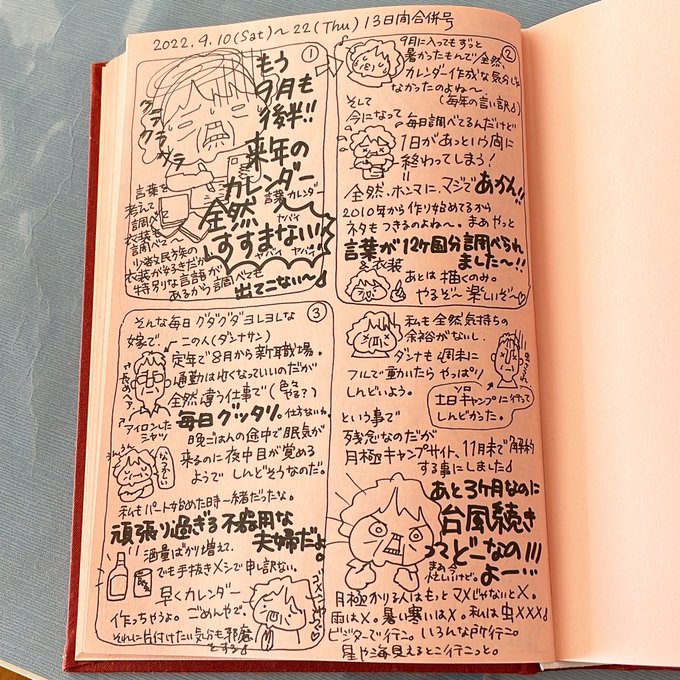 2022.9.10(Sat)～22(Thu)13日間合併号
①
もう
9月も
後半!!
来年の
カレンダー
言葉カレンダー
全然
ヤバイ
すすまない!!
ヤバイ ヤバイ
言葉を
考えて
調べて
衣装も
調べて〜
少数民族の
衣装がそろきだか
特別な言語が
あるから調べても
出てこない〜♪
②
9月に入ってもずっと
暑かったもんで全然、
カレンダー作成な気分じゃ
なかったのよね〜。
(毎年の言い訳♪)
そして
今になって
毎日調べてるんだけど
1日があっという間に
終わってしまう!
全然、ホンマに、マジであかん!!
2010年から作り始めてるから
ネタもつきるのよね〜。まぁやっと
言葉が12ヶ国分調べられ
ました〜!!
&衣装
あとは描くのみ。
やるぞ〜楽しいぞ〜♡
③
そんな毎日グダグダヨレヨレな
嫁で、この人(ダンナサン)
定年で8月から新職場。
通勤は近くなっていいのだが
全然違う仕事で(色々
やる?)
毎日グッタリ。仕方ないわ。
やや長めヘア
アイロンした
シャツ
晩ごはんの途中で眠気が
来るのに夜中目が覚める
ようで しんどそうなのだ。
うんうん
なつかしい
私もパート始めた時一緒だったな。
頑張り過ぎる不器用な
夫婦だよ。
酒量ばかり増えて、
でも手抜きメシで申し訳ない。
早くカレンダー
作っちゃうよ。ごめんやで。
それに片付けたい気分も邪魔
をする♪
ゴメンやで♡
私も全然気持ちの
余裕がないし、
ダンナも週末に
フルで動いたらやっぱり
しんどいよう。
ソロ
土日キャンプに行って
しんどかった。
という事で
残念なのだが
月極キャンプサイト、11月末で解約
する事にしました♪
あと3ヶ月なのに
台風続き
ってどーなの!!!
まぁ今
忙しいけど。
よー…
月極かりる人はもっとマメじゃないと×。
雨は×。暑い寒いは×。私は虫×××♪
ビジターで行こ。いろんな所行こ。
星や海見えるとこ行こっと。